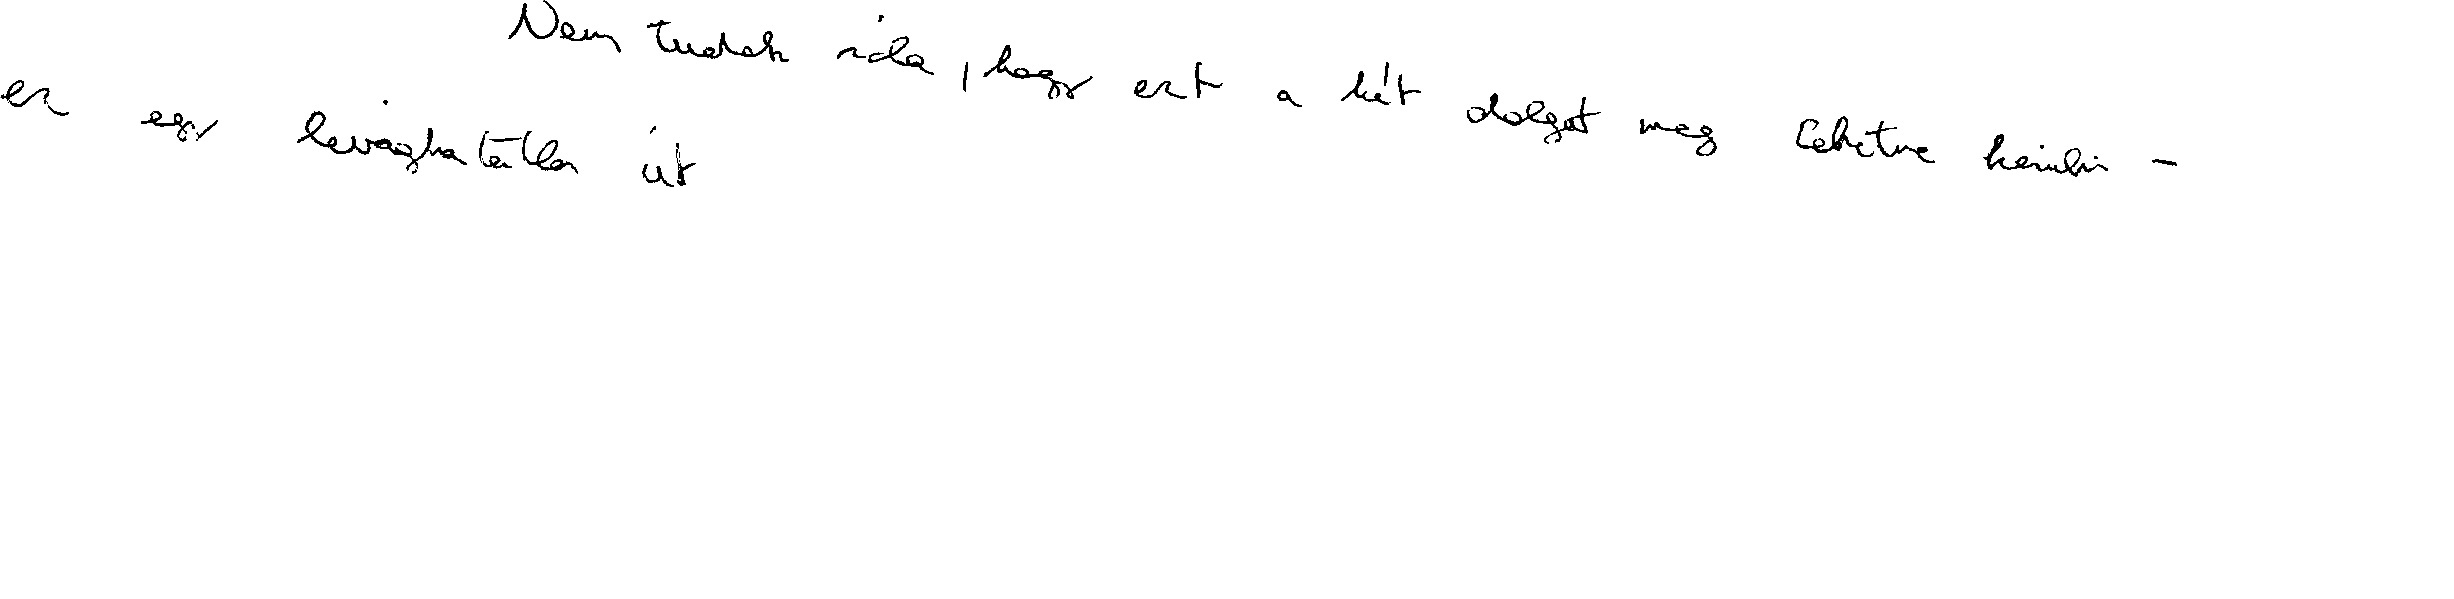 Nem tudok róla, hogy ezt a két dolgot meg lehetne kerülni –
ez egy levághatatlan út